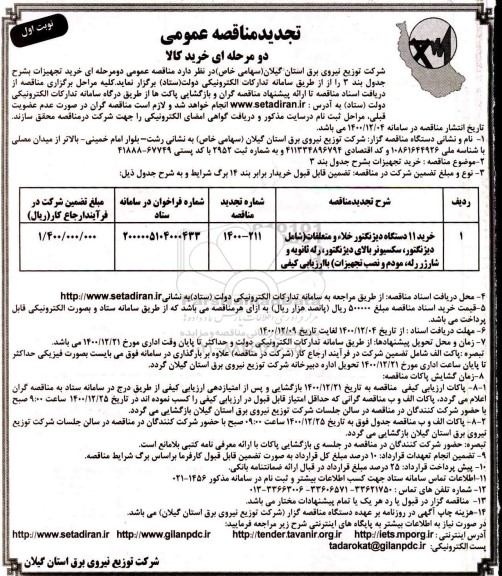 نوبت اول
تجدیدمناقصه عمومی
دو مرحله ای خرید کالا
شرکت توزیع نیروی برق استان گیلان(سهامی خاص)در نظر دارد مناقصه عمومی دومرحله ای خرید تجهیزات بشرح
جدول بند ۳ را از از طریق سامانه تدارکات الکترونیکی دولت(ستاد) برگزار نماید.کلیه مراحل برگزاری مناقصه از
دریافت اسناد مناقصه تا ارائه پیشنهاد مناقصه گران و بازگشایی پاکت ها از طریق درگاه سامانه تدارکات الکترونیکی
دولت (ستاد) به آدرس : www.setadiran.ir انجام خواهد شد و لازم است مناقصه گران در صورت عدم عضویت
قبلی، مراحل ثبت نام درسایت مذکور و دریافت گواهی امضای الکترونیکی را جهت شرکت درمناقصه محقق سازند.
تاریخ انتشار مناقصه در سامانه ۱۴۰۰/۱۲/۰۴ می باشد.
۱- نام و نشانی دستگاه مناقصه گزار: شرکت توزیع نیروی برق استان گیلان (سهامی خاص) به نشانی رشت–بلوار امام خمینی- بالاتر از میدان مصلی
با شناسه ملی ۱۰۸۶۱۶۴۴۹۲۶ و کد اقتصادی ۴۱۱۳۳۴۸۹۶۷۹۴ و به شماره ثبت ۲۹۵۲ با کد پستی ۶۷۷۴۹-۴۱۸۸۸
۲-موضوع مناقصه : خرید تجهیزات بشرح جدول بند ۳
۳- نوع و مبلغ تضمین شرکت در مناقصه: تضمین قابل قبول خریدار برابر بند ۱۴ برگ شرایط و به شرح جدول ذیل:
ردیف
شرح تجدیدمناقصه
شماره تجدید مناقصه
شماره فراخوان در سامانه ستاد
مبلغ تضمین شرکت در فرآیندارجاع کار(ریال)
۱
خرید ۱۱ دستگاه دیژنکتور خلاء و متعلقات(شامل
دیژنکتور، سکسیونر بالای دیژنکتور، رله ثانویه و
شارژر رله، مودم و نصب تجهیزات) باارزیابی کیفی
۱۴۰۰-۲۱۱
۲۰۰۰۰۰۵۱۰۴۰۰۰۴۳۳
۱/۴۰۰/۰۰۰/۰۰۰
۴- محل دریافت اسناد مناقصه: از طریق مراجعه به سامانه تدارکات الکترونیکی دولت (ستاد)به نشانیhttp://www.setadiran.ir
۵-قیمت خرید اسناد مناقصه مبلغ ۵۰۰۰۰۰ ریال (پانصد هزار ریال) به ازای هرمناقصه می باشد که از طریق سامانه ستاد و بصورت الکترونیکی قابل
پرداخت می باشد.
۶- مهلت دریافت اسناد : از تاریخ ۱۴۰۰/۱۲/۰۴ لغایت تاریخ ۱۴۰۰/۱۲/۰۹
۷- زمان و محل تحویل پیشنهادها: از طریق سامانه تدارکات الکترونیکی دولت و حداکثر تا پایان وقت اداری مورخ ۱۴۰۰/۱۲/۲۱ می باشد.
تبصره :پاکت الف شامل تضمین شرکت در فرآیند ارجاع کار (شرکت در مناقصه) علاوه بر بارگذاری در سامانه فوق می بایست بصورت فیزیکی حداکثر
تا پایان ساعت اداری مورخ ۱۴۰۰/۱۲/۲۱ تحویل اداره دبیرخانه شرکت توزیع نیروی برق استان گیلان گردد.
۸-زمان گشایش پاکات مناقصه:
۸-۱- پاکات ارزیابی کیفی مناقصه به تاریخ ۱۴۰۰/۱۲/۲۱ بازگشایی و پس از امتیازدهی ارزیابی کیفی از طریق درج در سامانه ستاد به مناقصه گران
اعلام می گردد، پاکات الف و ب مناقصه گرانی که حداقل امتیاز قابل قبول در ارزیابی کیفی را کسب نموده اند در تاریخ ۱۴۰۰/۱۲/۲۵ ساعت ۹:۰۰ صبح
با حضور شرکت کنندگان در مناقصه در سالن جلسات شرکت توزیع نیروی برق استان گیلان بازگشایی می گردد.
۸-۲- پاکات الف و ب مناقصه جدول فوق به تاریخ ۱۴۰۰/۱۲/۲۵ ساعت ۰۹:۰۰ صبح با حضور شرکت کنندگان در مناقصه در سالن جلسات شرکت توزیع
نیروی برق استان گیلان بازگشایی می گردد.
تبصره: حضور شرکت کنندگان در مناقصه در جلسه ی بازگشایی پاکات با ارائه معرفی نامه کتبی بلامانع است.
۹- تضمین انجام تعهدات قرارداد: ۱۰ درصد مبلغ کل قرارداد به صورت تضمین قابل قبول کارفرما براساس برگ شرایط مناقصه.
۱۰- پیش پرداخت قرارداد: ۲۵ درصد مبلغ قرارداد در قبال ارائه ضمانتنامه بانکی.
۱۱- اطلاعات تماس سامانه ستاد جهت کسب اطلاعات بیشتر و ثبت نام در سامانه مذکور ۱۴۵۶-۰۲۱
۱۲- شماره تلفن های تماس : ۳۳۶۲۱۷۵۰-۳۳۶۰۶۵۷۱-۳۳۶۶۳۰۰۶-۰۱۳
۱۳- مناقصه گزار در قبول یا رد هر یک یا تمام پیشنهادات مختار می باشد.
۱۴-هزینه چاپ آگهی در روزنامه بر عهده دستگاه مناقصه گزار (شرکت توزیع نیروی برق استان گیلان) می باشد.
در صورت نیاز به اطلاعات بیشتر به پایگاه های اینترنتی شرح زیر مراجعه فرمایید:
آدرس اینترنتی: http://iets.mporg.ir http://tender.tavanir.org.ir http://www.gilanpdc.ir http://www.setadiran.ir
پست الکترونیکی: tadarokat@gilanpdc.ir
شرکت توزیع نیروی برق استان گیلان